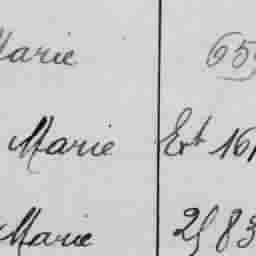 Marie 65
Marie Ext 161
Marie 2583